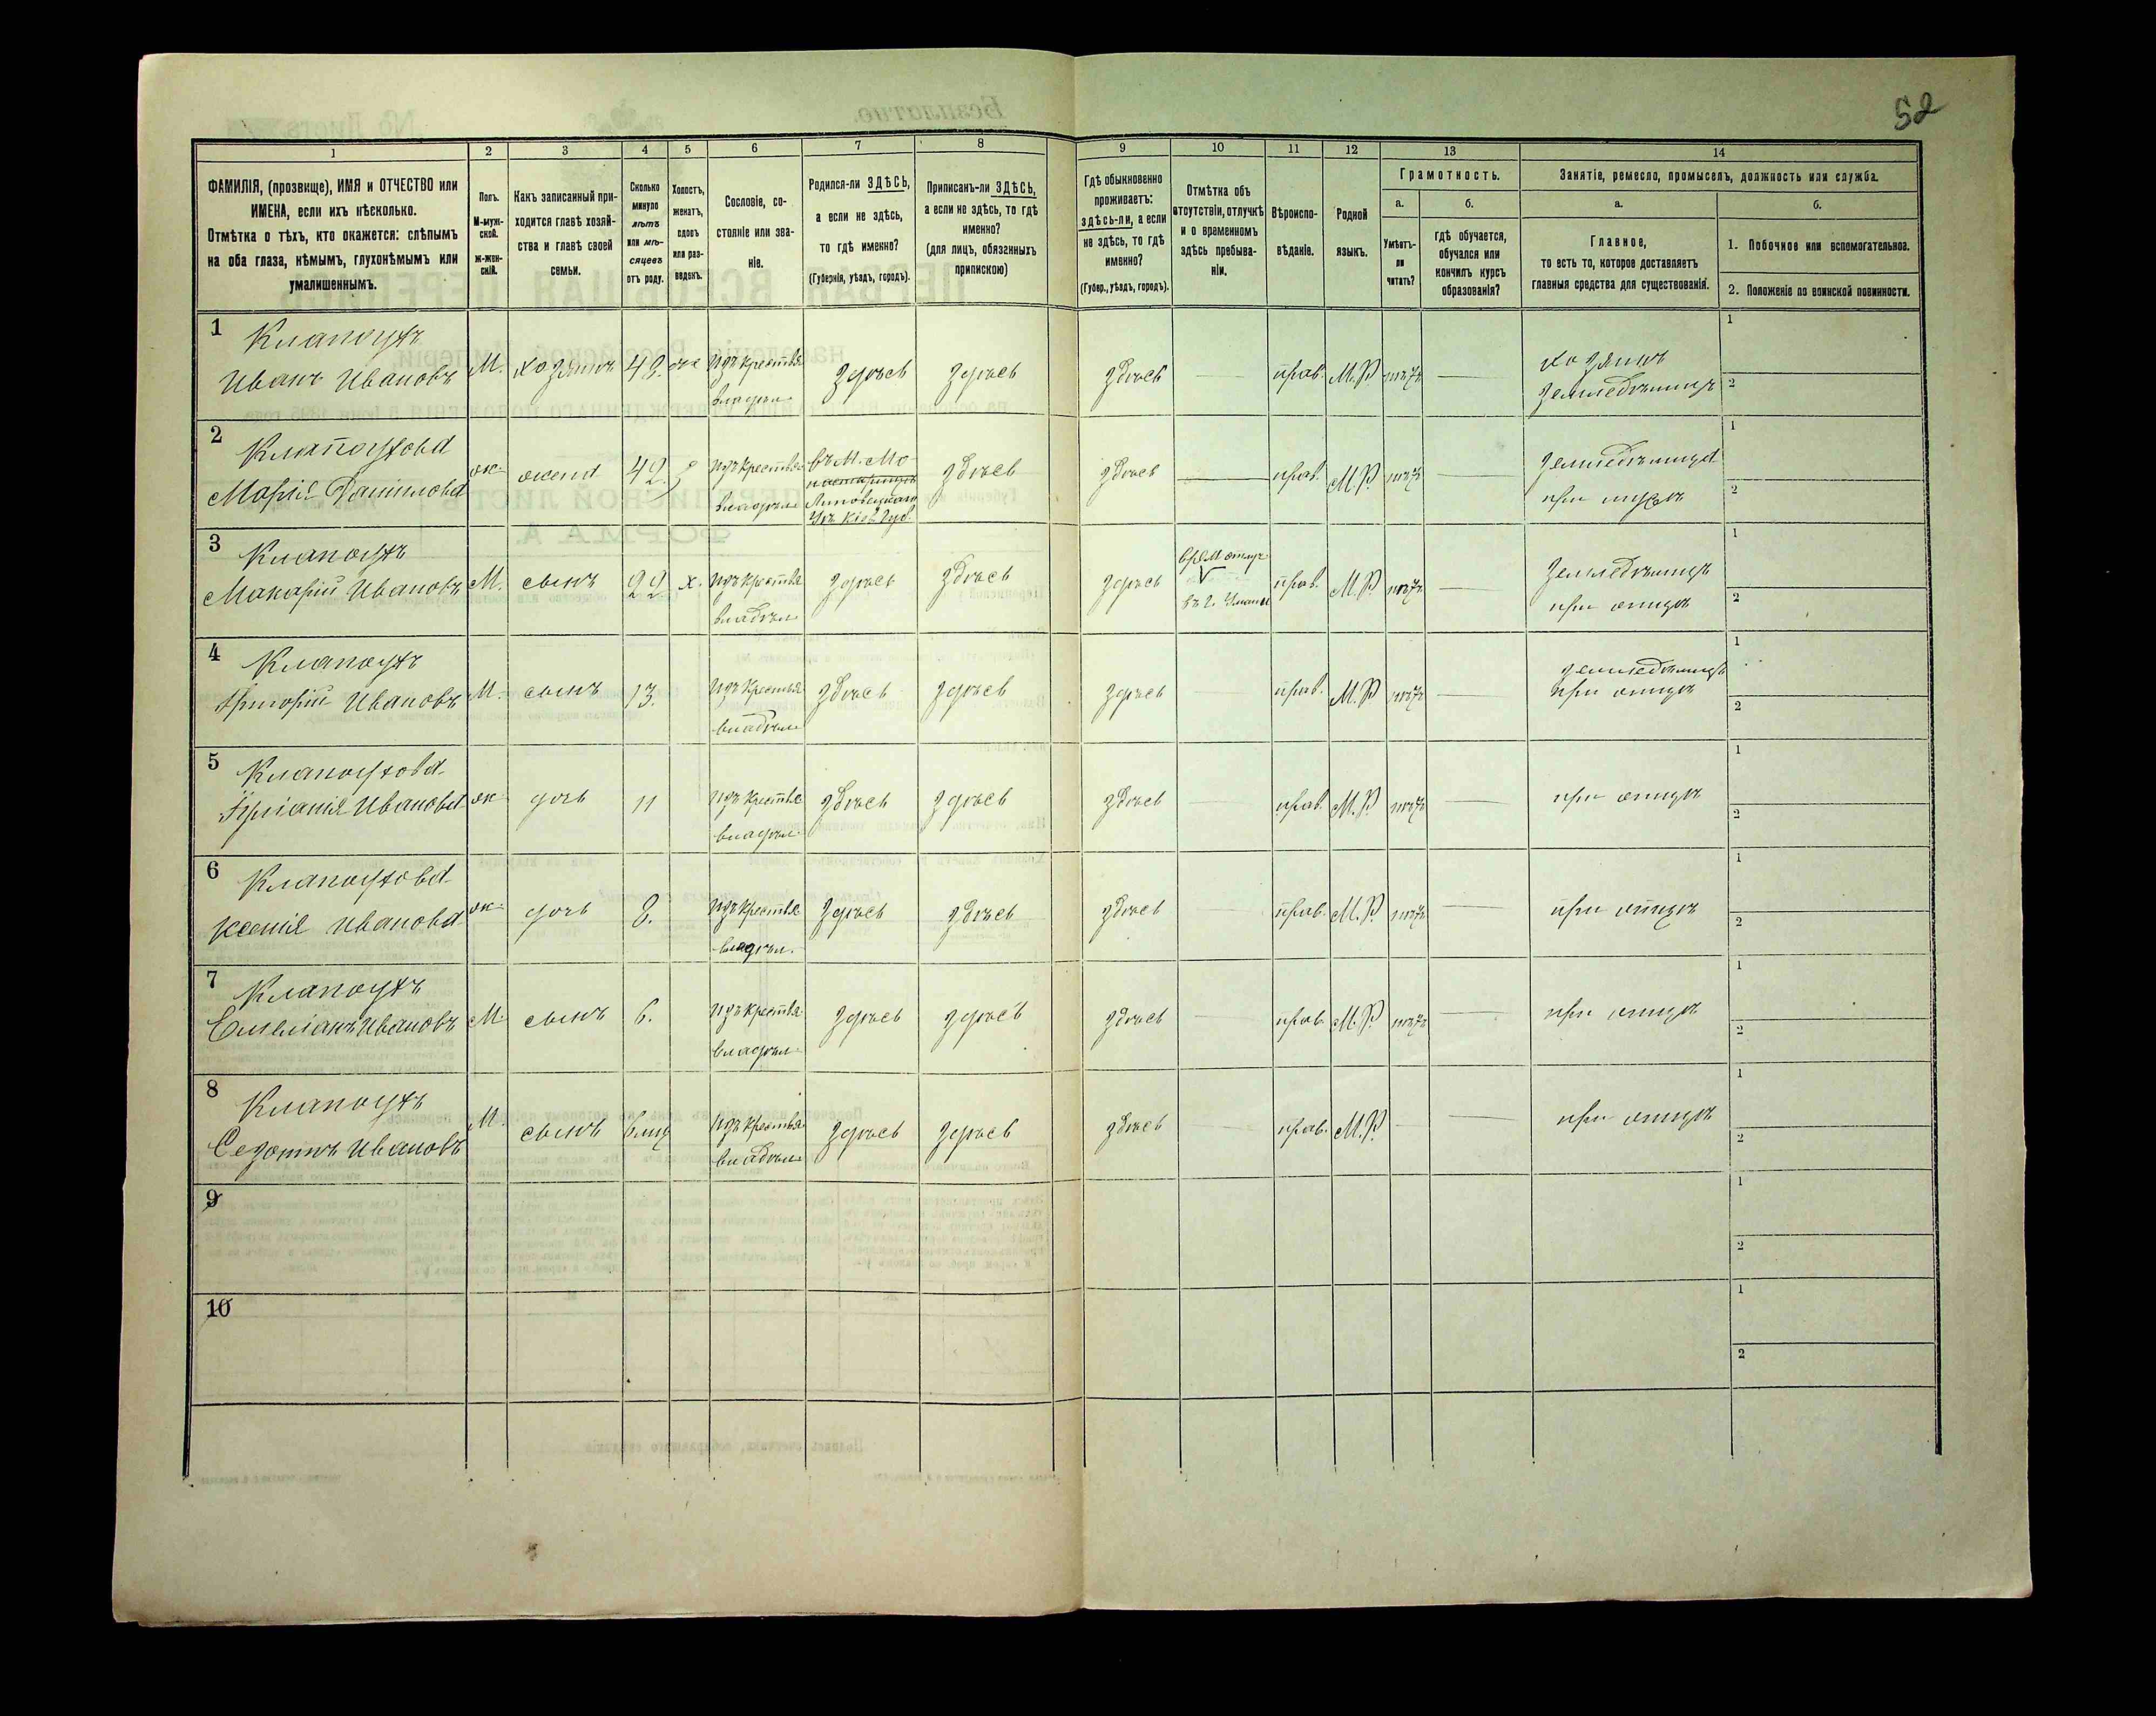 52
1 2 3 4 5 6 7 8 9 10 11 12 13 14
ФАМИЛІЯ, (прозвище), ИМЯ и ОТЧЕСТВО или
ИМЕНА, если ихъ нѣсколько.
Отмѣтка о тѣхъ, кто окажется: слѣпымъ
на оба глаза, нѣмымъ, глухонѣмымъ или
умалишеннымъ.
Полъ.
М-муж-
ской.
ж-жен-
скій.
Какъ записанный при-
ходится главѣ хозяй-
ства и главѣ своей
семьи.
Сколько
минуло
лѣтъ
или мѣ-
сяцевъ
отъ роду.
Холостъ,
женатъ,
вдовъ
или раз-
веденъ.
Сословіе, со-
стояніе или зва-
ніе.
Родился-ли ЗДѢСЬ,
а если не здѣсь,
то гдѣ именно?
(Губернія, уѣздъ, городъ).
Приписанъ-ли ЗДѢСЬ,
а если не здѣсь, то гдѣ
именно?
(для лицъ, обязанныхъ
припискою)
Гдѣ обыкновенно
проживаетъ:
здѣсь-ли, а если
не здѣсь, то гдѣ
именно?
(Губер., уѣздъ, городъ).
Отмѣтка объ
отсутствіи, отлучкѣ
и о временномъ
здѣсь пребыва-
ніи.
Вѣроиспо-
вѣданіе.
Родной
языкъ.
Грамотность.
а.
Умѣетъ-
ли
читать?
б.
гдѣ обучается,
обучался или
кончилъ курсъ
образованія?
Занятіе, ремесло, промыселъ, должность или служба.
а.
Главное,
то есть то, которое доставляетъ
главныя средства для существованія.
б.
1. Побочное или вспомогательное.
2. Положеніе по воинской повинности.
1 Клапоухъ
Иванъ Ивановъ М. хозяинъ 42. Изъ крестья здѣсь здѣсь здѣсь прав. М.Р. нѣтъ хозяинъ
владѣл. земледѣлецъ
1
2
2 Клапоухова
Марія Данилова ж жена 42. Изъ крестья въ М. Мо-
настырищѣ
владѣл. Липовецкаго
Уѣз. Кіев. Губ.
здѣсь здѣсь прав. М.Р. нѣтъ земледѣлица
при мужѣ
1
2
3 Клапоухъ
Макарій Ивановъ М. сынъ 22. х. Изъ крестья здѣсь здѣсь здѣсь врем. отлуч.
въ г. Умани прав. М.Р. нѣтъ земледѣлецъ
владѣл. при отцѣ
1
2
4 Клапоухъ
Григорій Ивановъ М. сынъ 13. Изъ крестья здѣсь здѣсь здѣсь прав. М.Р. нѣтъ земледѣлецъ
владѣл. при отцѣ
1
2
5 Клапоухова
Іуліанія Иванова ж дочь 11 Изъ крестья здѣсь здѣсь здѣсь прав. М.Р. нѣтъ при отцѣ
владѣл.
1
2
6 Клапоухова
Ксенія Иванова ж дочь 8. Изъ крестья здѣсь здѣсь здѣсь прав. М.Р. нѣтъ при отцѣ
владѣл.
1
2
7 Клапоухъ
Емеліанъ Ивановъ М. сынъ 6. Изъ крестья здѣсь здѣсь здѣсь прав. М.Р. нѣтъ при отцѣ
владѣл.
1
2
8 Клапоухъ
Ивановъ М. сынъ Изъ крестья здѣсь здѣсь здѣсь прав. М.Р. при отцѣ
владѣл.
1
2
9
1
2
10
1
2